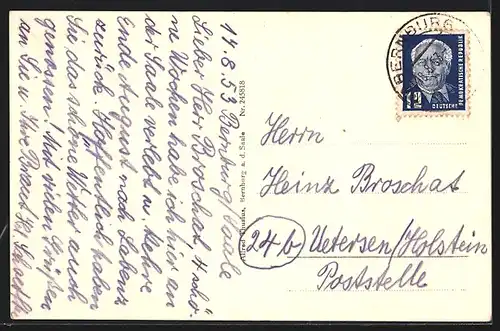 14.8.53 Bernburg/Saale
Lieber Herr Broschat, 4 schö-
ne Wochen habe ich hier an
der Saale verlebt u. kehre
Ende August nach Lobenz
zurück. Hoffentlich haben
Sie das schöne Wetter auch
genossen! Mit vielen Grüßen
an Sie u. Ihre
Bernburg a. d. Saale Nr. 245818
BERNBURG
DEUTSCHE
DEMOKRATISCHE REPUBLIK
Herrn
Heinz Broschat
24b Uetersen/Holstein
Poststelle